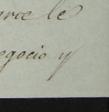 le
egocio y